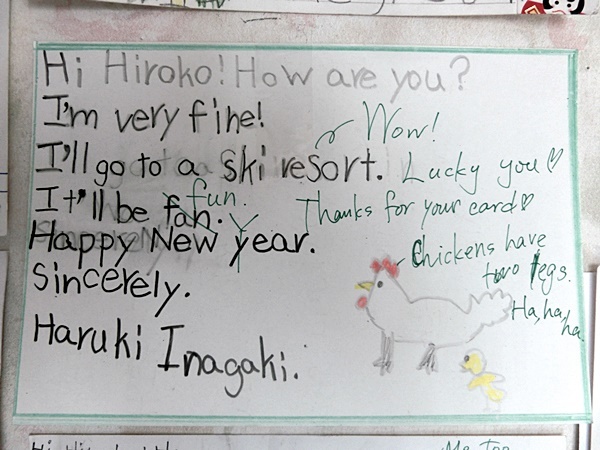 Hi Hiroko! How are you?
I'm very fine!
Wow!
I'll go to a ski resort.
Lucky you♡
fun.
It'll be fan.
Thanks for your card♡
Y
Happy New year.
Chickens have
two legs.
Ha, ha,
ha.
Sincerely.
Haruki Inagaki.
Me Too